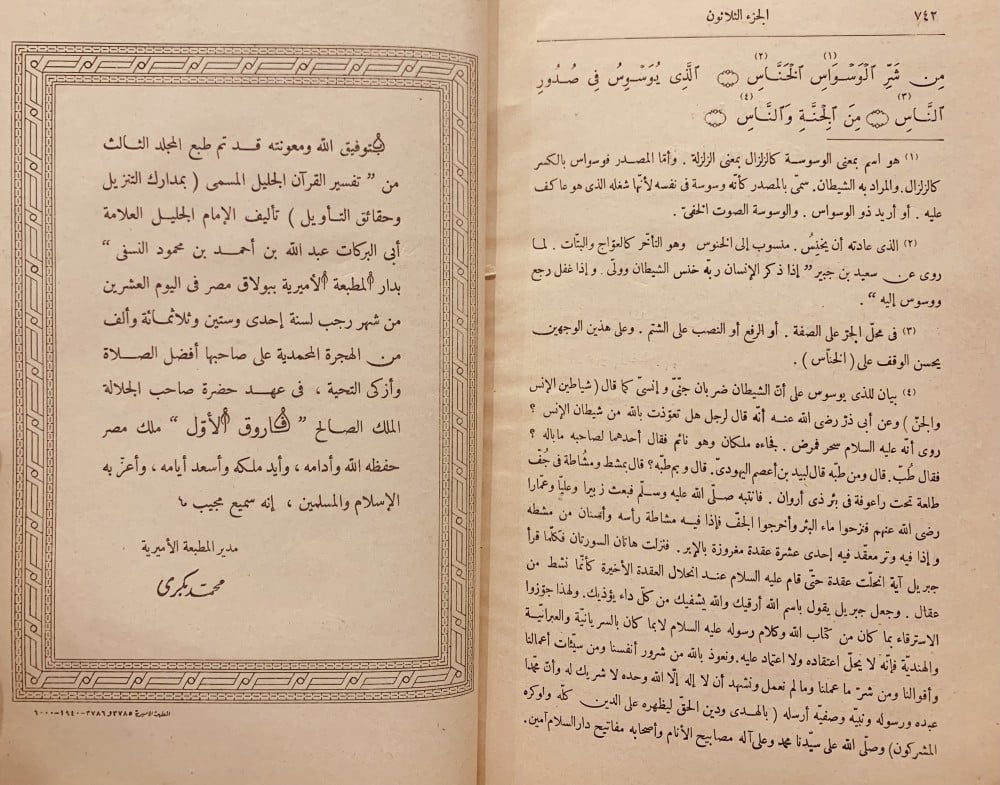 ٧٤٢
الجزء الثلاثون
مِن شَرِّ ٱلْوَسْوَاسِ (١) ٱلْخَنَّاسِ (٢) ۝ ٱلَّذِى يُوَسْوِسُ فِى صُدُورِ
ٱلنَّاسِ (٣) ۝ مِنَ ٱلْجِنَّةِ وَٱلنَّاسِ (٤) ۝
(١) هو اسم بمعنى الوسوسة كالزلزال بمعنى الزلزلة . وأمّا المصدر فوسواس بالكسر
كالزلزال. والمراد به الشيطان. سمّى بالمصدر كأنّه وسوسة فى نفسه لأنّها شغله الذى هو عاكف
عليه . أو أريد ذو الوسواس . والوسوسة الصوت الخفىّ.
(٢) الذى عادته أن يخنِسُ . منسوب إلى الخنوس وهو التأخّر كالعوّاج والبتّات . لما
روى عن سعيد بن جبير ” إذا ذكر الإنسان ربّه خنس الشيطان وولّى . وإذا غفل رجع
ووسوس إليه “ .
(٣) فى محلّ الجرّ على الصفة . أو الرفع أو النصب على الشتم . وعلى هذين الوجهين
يحسن الوقف على ( الخنّاس ) .
(٤) بيان للذى يوسوس على أنّ الشيطان ضربان جنّىّ وإنسىّ كما قال ( شياطين الإنس
والجنّ ) وعن أبى ذرّ رضى الله عنه أنّه قال لرجل هل تعوّذت بالله من شيطان الإنس ؟
روى أنّه عليه السلام سحر فمرض . فجاءه ملكان وهو نائم فقال أحدهما لصاحبه ما باله ؟
فقال طُبّ. قال ومن طبّه قال لبيد بن أعصم اليهودىّ. قال وبم طبّه؟ قال بمشط ومشاطة فى جُفّ
طالعة تحت راعوفة فى بئر ذى أروان . فانتبه صلّى الله عليه وسلّم فبعث زبيرا وعليّا وعمّارا
رضى الله عنهم فنزحوا ماء البئر وأخرجوا الجفّ فإذا فيه مشاطة رأسه وأسنان من مشطه
وإذا فيه وتر معقّد فيه إحدى عشرة عقدة مغروزة بالإبر. فنزلت هاتان السورتان فكلّما قرأ
جبريل آية انحلّت عقدة حتّى قام عليه السلام عند انحلال العقدة الأخيرة كأنّما نشط من
عقال . وجعل جبريل يقول باسم الله أرقيك والله يشفيك من كلّ داء يؤذيك. ولهذا جوّزوا
الاسترقاء بما كان من كتاب الله وكلام رسوله عليه السلام لا بما كان بالسريانيّة والعبرانيّة
والهنديّة فإنّه لا يحلّ اعتقاده ولا اعتماد عليه. ونعوذ بالله من شرور أنفسنا ومن سيّئات أعمالنا
وأقوالنا ومن شرّ ما عملنا وما لم نعمل ونشهد أن لا إله إلّا الله وحده لا شريك له وأنّ محمّدا
عبده ورسوله ونبيّه وصفيّه أرسله ( بالهدى ودين الحقّ ليظهره على الدين كلّه ولو كره
المشركون) وصلّى الله على سيّدنا محمد وعلى آله مصابيح الأنام وأصحابه مفاتيح دار السلام آمين.
بتوفيق الله ومعونته قد تم طبع المجلد الثالث
من ” تفسير القرآن الجليل المسمى ( بمدارك التنزيل
وحقائق التأويل ) تأليف الإمام الجليل العلامة
أبى البركات عبد الله بن أحمد بن محمود النسفى “
بدار المطبعة الأميرية ببولاق مصر فى اليوم العشرين
من شهر رجب لسنة إحدى وستين وثلاثمائة وألف
من الهجرة المحمدية على صاحبها أفضل الصلاة
وأزكى التحية ، فى عهد حضرة صاحب الجلالة
الملك الصالح ” فاروق الأوّل “ ملك مصر
حفظه الله وأدامه ، وأيد ملكه وأسعد أيامه ، وأعزّ به
الإسلام والمسلمين ، إنه سميع مجيب
مدير المطبعة الأميرية
محمد بكرى
المطبعة الأميرية ٣٧٨٥ و ٣٧٨٦-١٩٤٠-٦٠٠٠